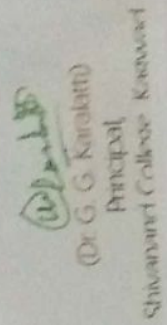 (Dr. G. G Karalatti)
Principal,
Shivanand College Kagwad